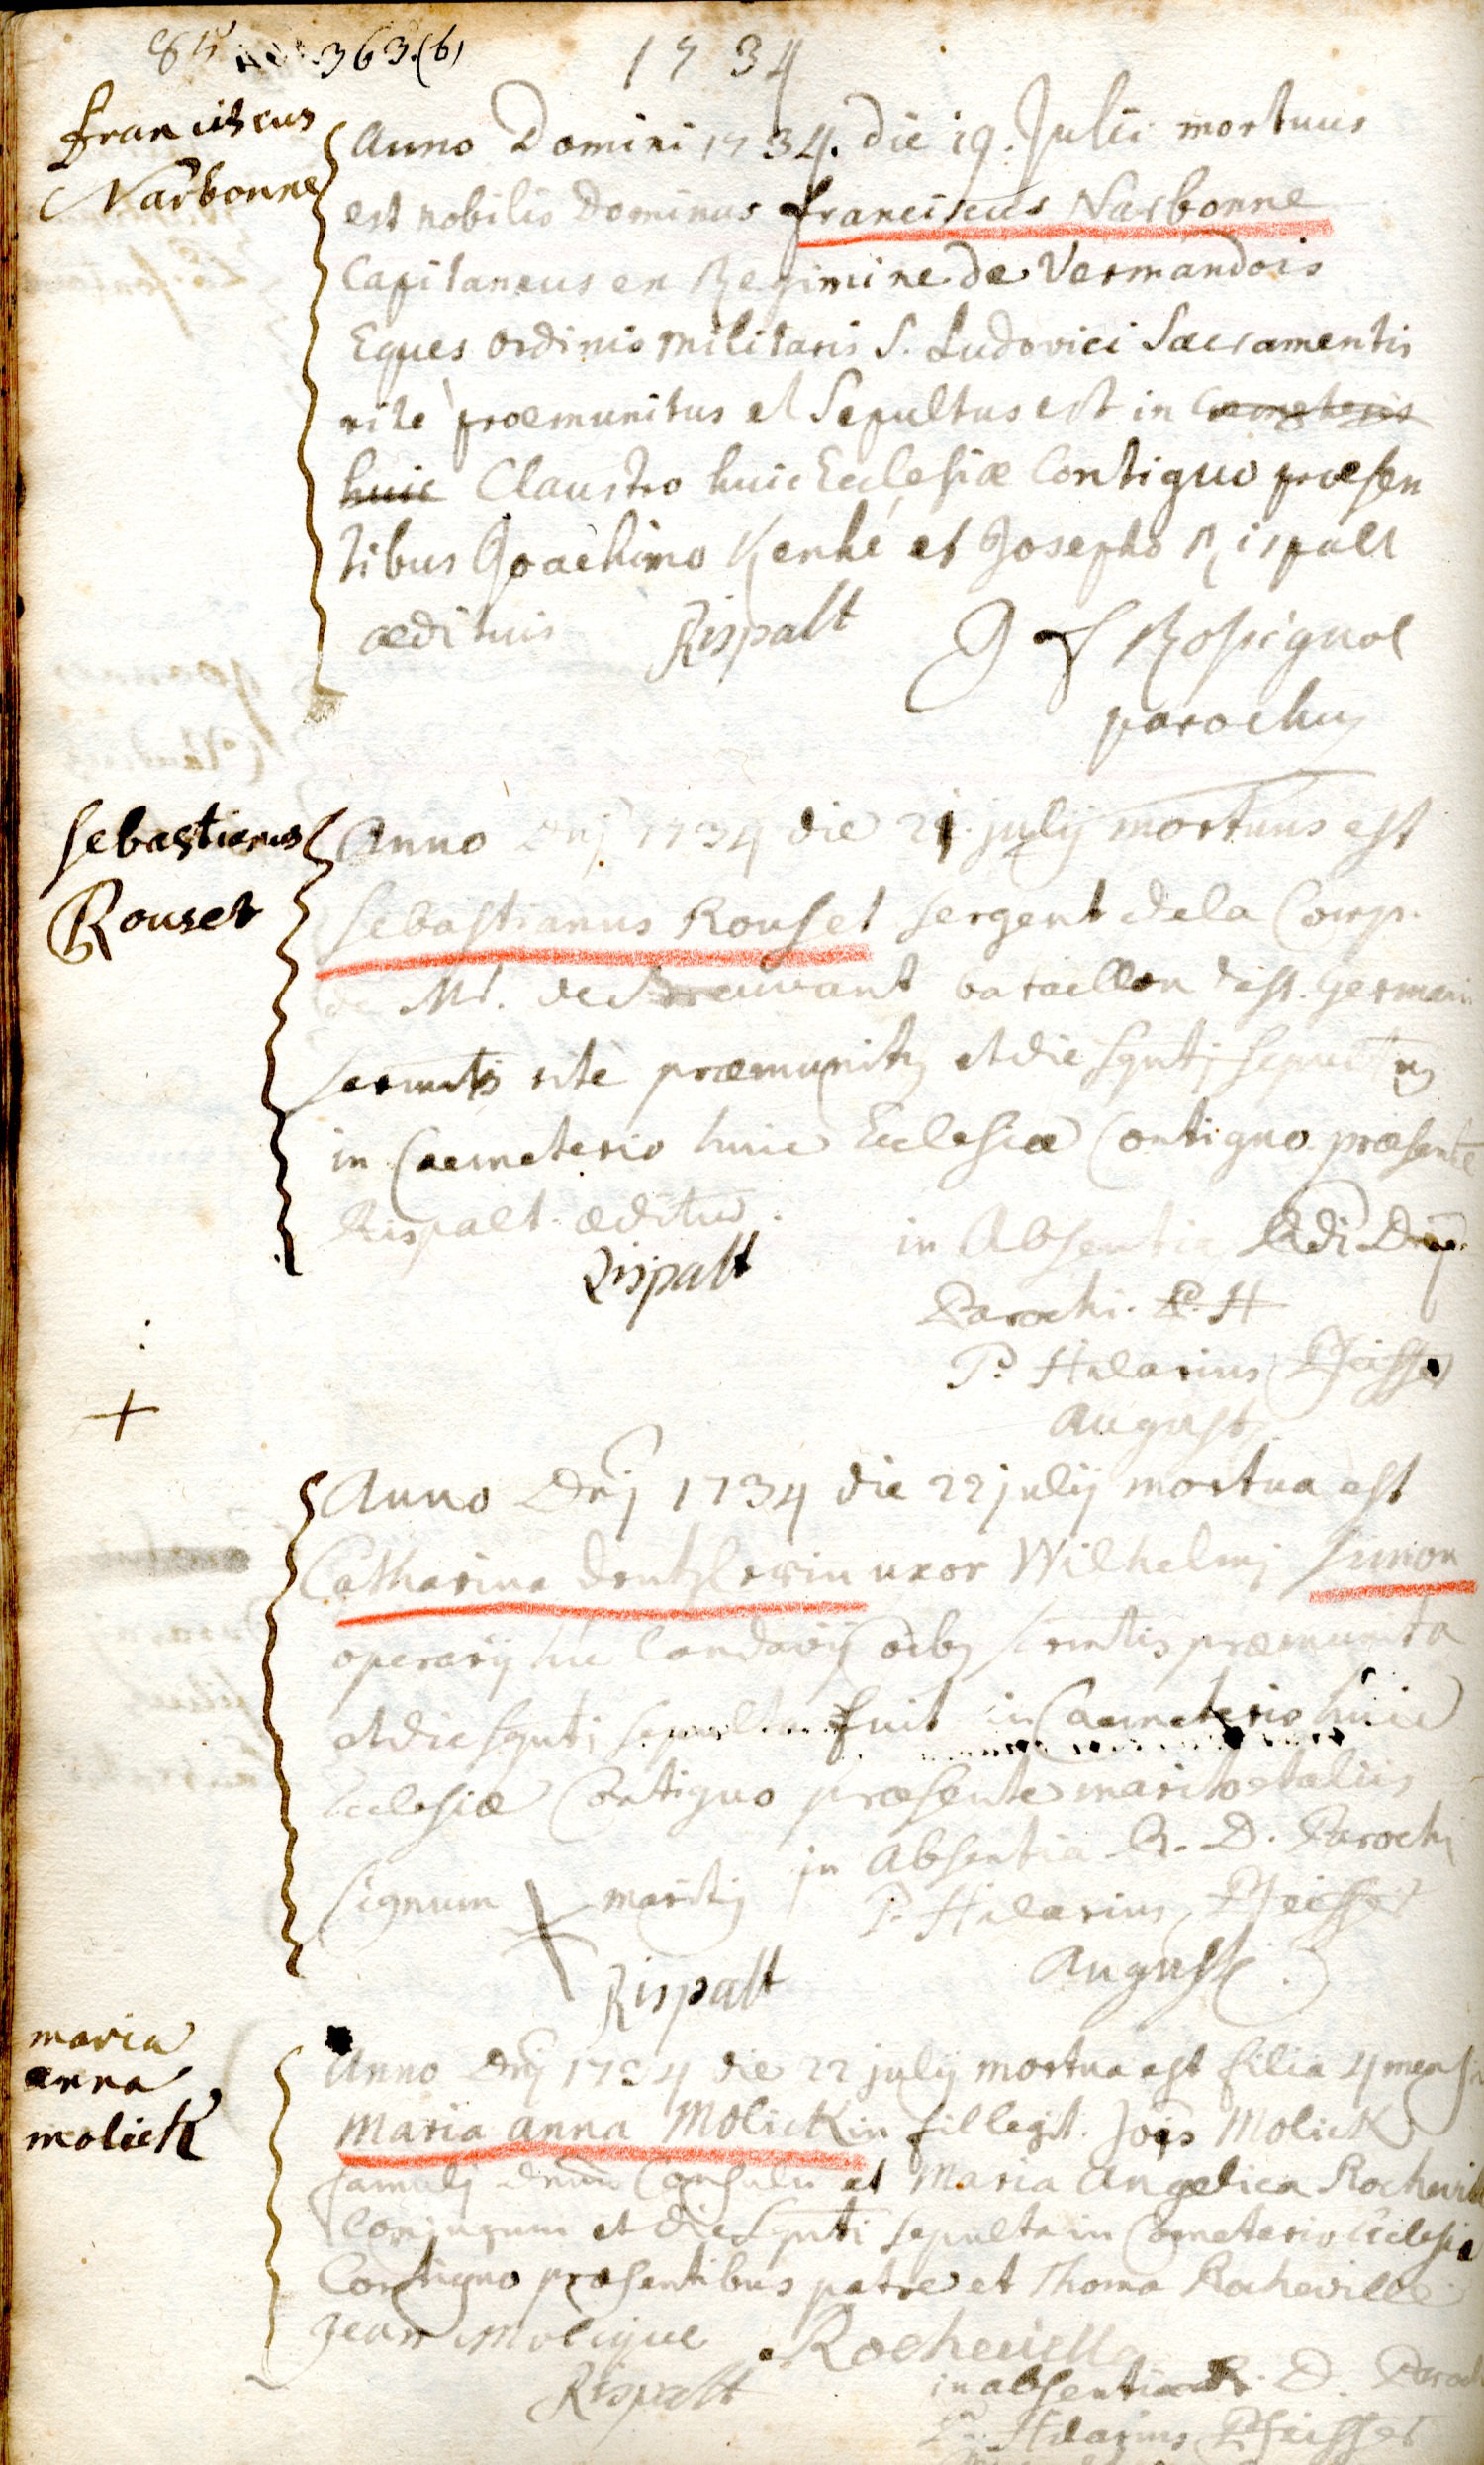 363.(b)
1734
Franciscus
Narbonne
Anno Domini 1734. die 19. Julii mortuus
est nobilis Dominus franciscus Narbonne
Capitaneus en Regimine de Vermandois
Eques ordinis militaris S. Ludovici Sacramentis
rite praemunitus et Sepultus est in Caemeterio
huic Claustro huic Ecclesiae Contiguo praesen
tibus Joachimo Kenhé et Josepho Rispalt
aedituis Rispalt J f Rosignol
parochus
Sebastianus
Rouset
Anno Dnj 1734 die 21. julij mortuus est
Sebastianus Rouset sergent de la Comp.
de Mr. de bataillon de st. germain
sacrmtis rite praemunitus et die sqnti sepultus
in Caemeterio huic Ecclesiae Contiguo praesente
Rispalt aedituo.
Rispalt
in Absentia Rdi Dni
Parochi. P. H
P. Hilarius Pfeiffer
August
+
Anno Dnj 1734 die 22 julij mortua est
Catharina uxor Wilhelmj Simon
operarij hic Landavij oibus scrmtis praemunita
et die sqnti sepulta fuit in Caemeterio huic
Ecclesiae Contiguo praesente marito et aliis
in Absentia R. D. Parochi
Signum mariti P. Hilarius Pfeiffer
Rispalt August.
maria
anna
molick
Anno Dnj 1734 die 22 julij mortua est filia 4 mensium
Maria anna Molickin fil legit. Jois Molick
famulj Dnni Consulis et Maria Angelica Rocheville
Conjugum et die sqnti sepulta in Caemeterio Ecclesiae
Contiguo praesentibus patre et Thoma Rocheville
Jean Molique Rocheville
Rispalt
in absentia R. D. Parochi
P. Hilarius Pfeiffer